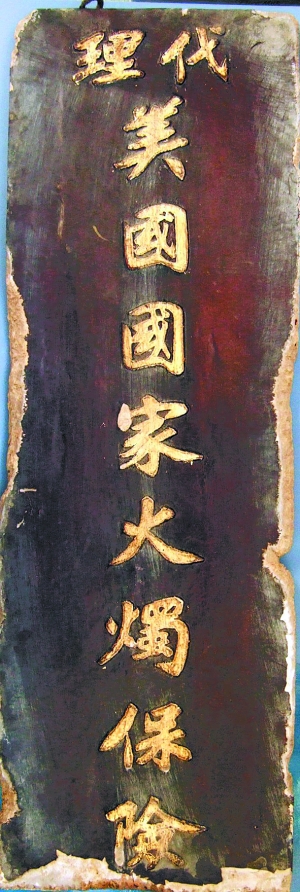 代理
美國國家火燭保險